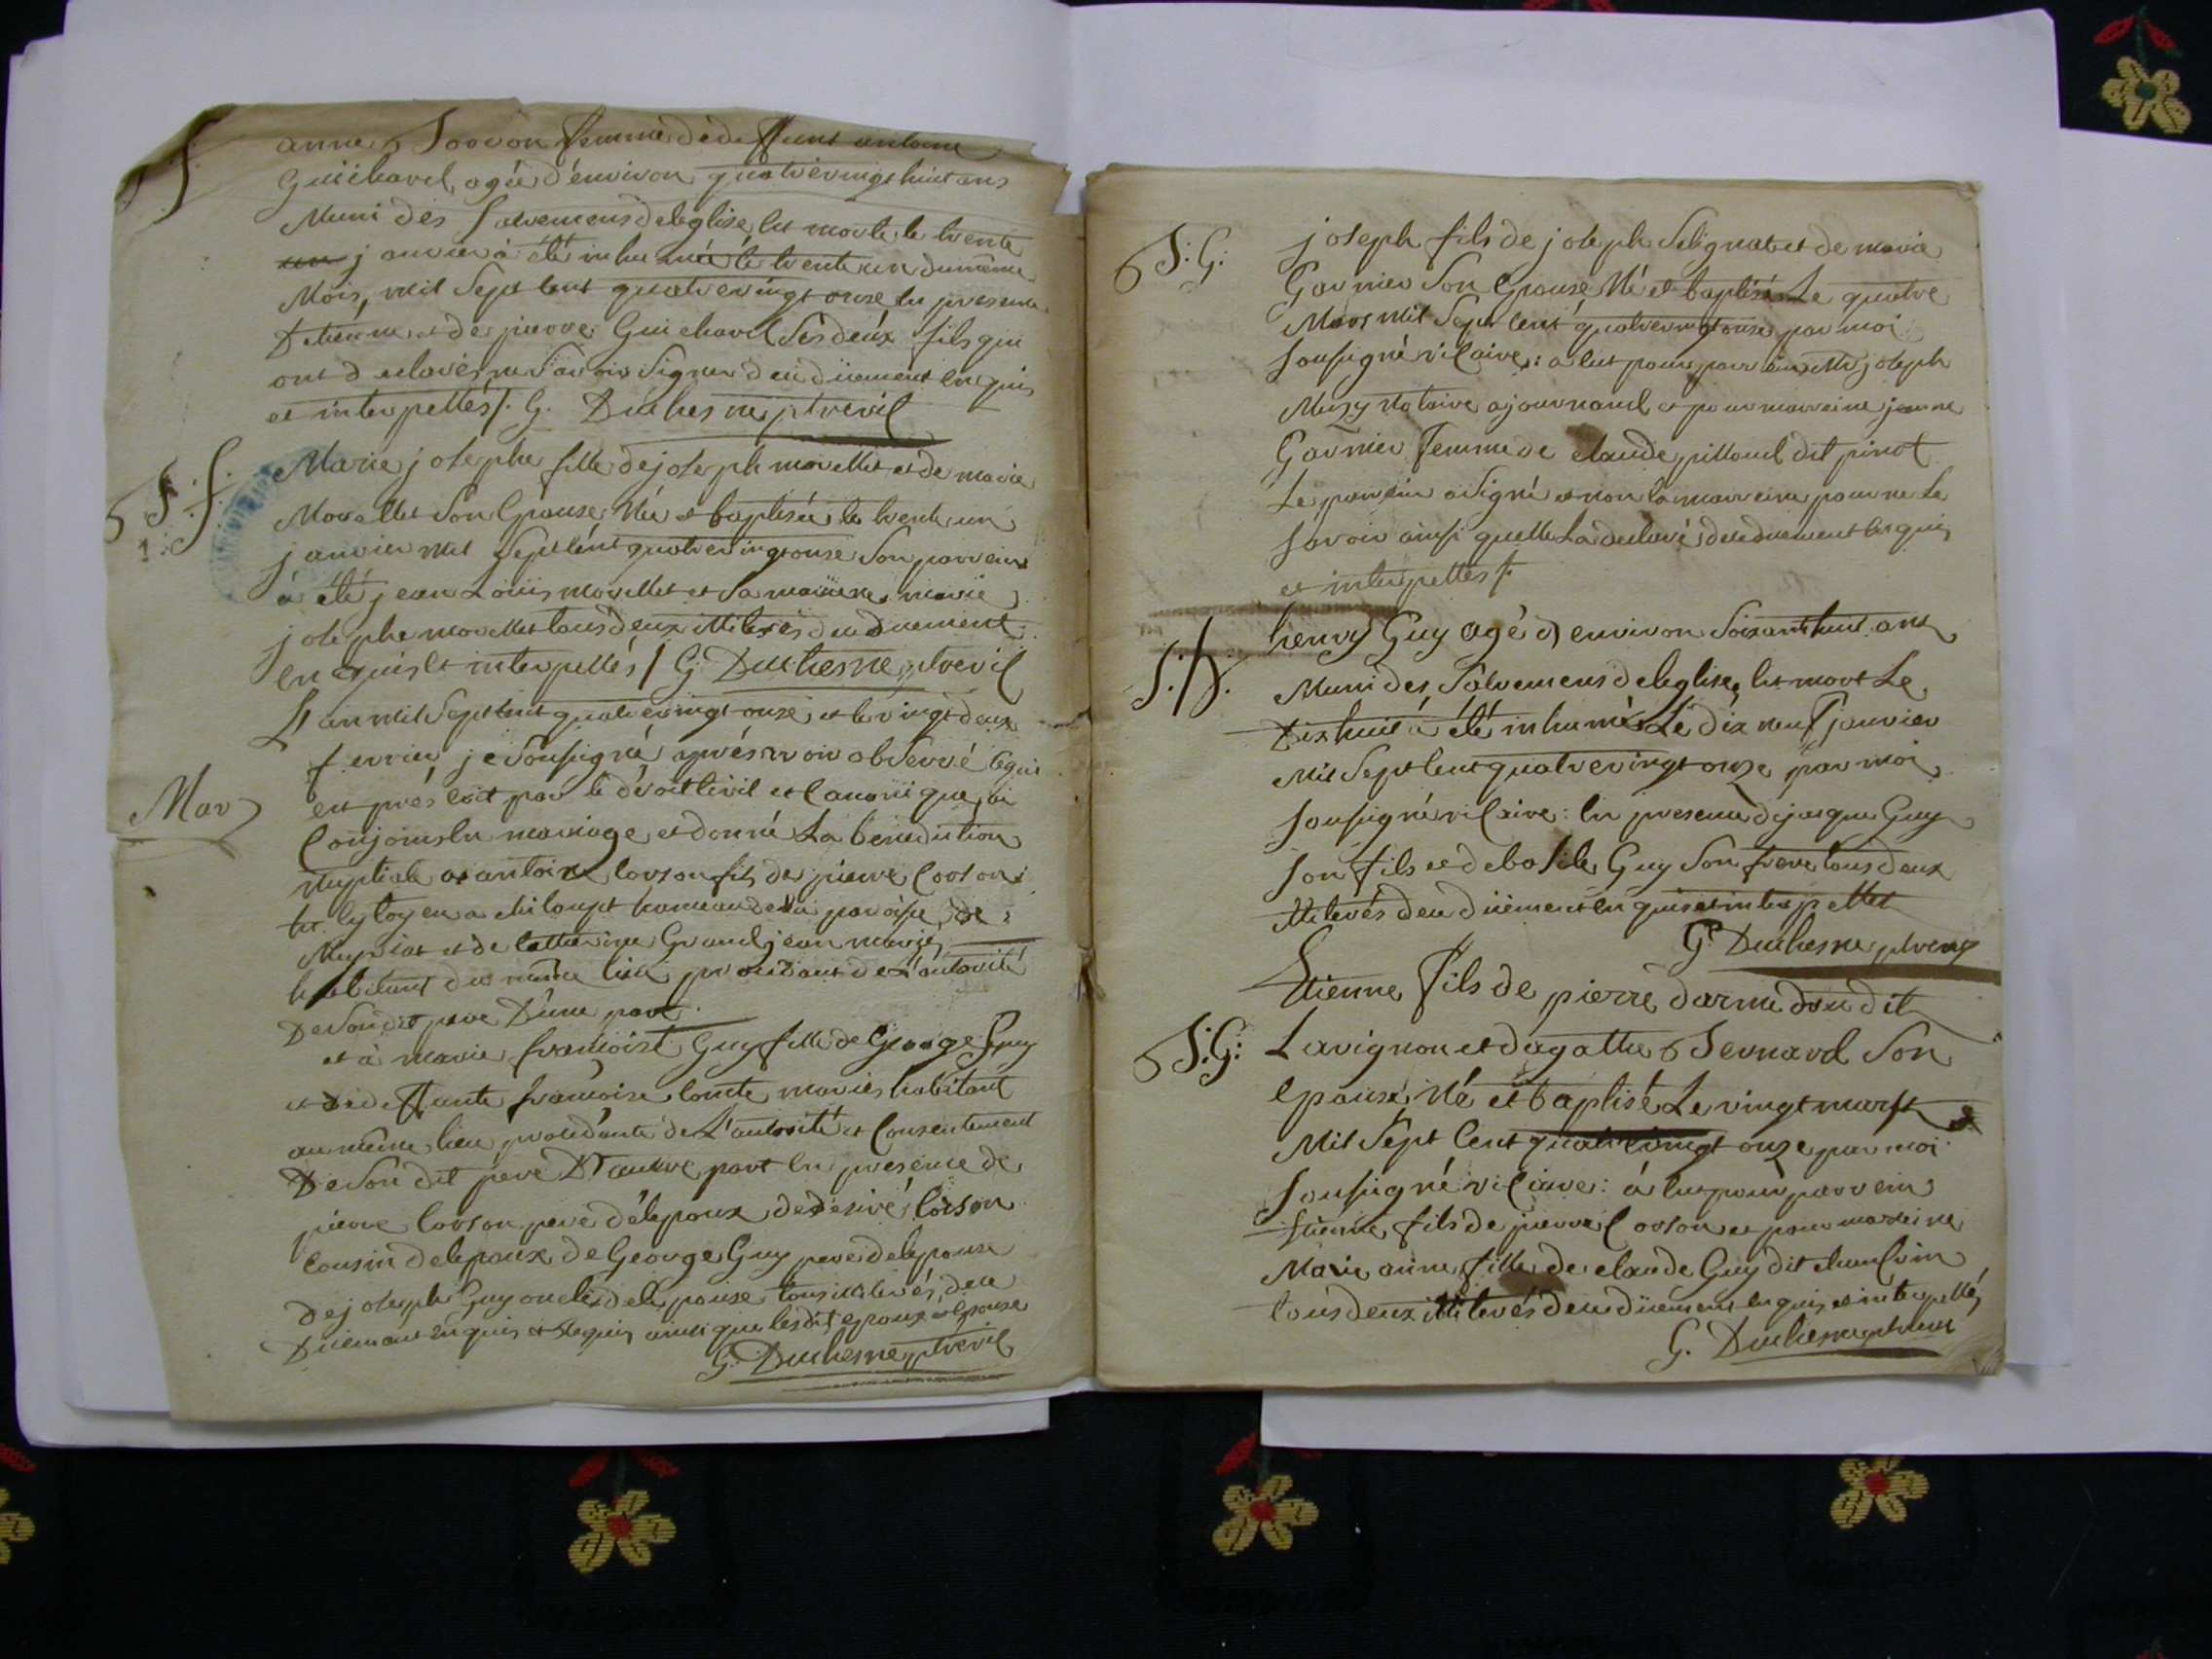 anne Borron femme de deffunt antoine
Guichard, agée d'environ quatrevingt huit ans
Muni des sacremens de leglise, est morte le trente
un janvier à été inhumé le trente un du même
Mois, mil sept cent quatrevingt onze en presence
D'etienne et de pierre Guichard ses deux fils qui
ont declaré ne savoir signer deu düement enquis
et interpellés /. G. Duchesne ptre vic
B. f.
Marie josephe fille de joseph morellet et de marie
Morellet son Epouse Née et baptisée le trente un
janvier mil sept cent quatrevingt onze son parrein
à été jean Loüis morellet et sa marreine marie
josephe morellet tous deux illiterés deu duement
enquis et interpellés / G. Duchesne ptre vic
L'an mil sept cent quatrevingt onze et le vingt deux
fevrier je soussigné aprés avoir observé ce qui
est préscrit par le droit civil et canonique, ai
Conjoins en mariage et donné La benediction
Mar
Nuptiale a antoine corson fils de pierre corson
citoyen a chiloup hameau de la paroisse de
et de catherine Grandjean mariés
habitant du même lieu procedant de L'autorité
De son dit pere D'une part.
et à marie francoise Guy fille de George Guy
et de deffunte francoise comte mariés habitant
au même lieu procedante de L'autorité et Consentement
De son dit pere D'autre part en presence de
pierre corson pere de lepoux de desiré corson
cousin de lepoux de George Guy pere de lepouse
De joseph Guy oncle de lepouse tous illiterés, deu
Duement enquis et requis ainsi que lesdit epoux et epouse
G. Duchesne ptre vic
B. G:
joseph fils de joseph Selignat et de marie
Garnier son Epouse Né et baptisé Le quatre
Mars mil sept cent quatrevingt onze par moi
soussigné vicaire: a eut pour parrein Mr joseph
Musy Notaire a journand et pour marreine jeanne
Garnier femme de claude pilloud dit pinot
Le parrein a signé et non la marreine pour ne Le
savoir ainsi quelle La declaré de ce duement enquis
et interpellés /.
S. h.
henry Guy agé d environ soixant huit ans
Muni des sacremens de leglise, est mort Le
Dix huit à été inhumé Le dix neuf janvier
Mil sept cent quatrevingt onze par moi
soussigné vicaire: en presence de jacque Guy
son fils et de basile Guy son frere tous deux
illiterés deu düement enquis et interpellet
G. Duchesne ptre vic
Etienne fils de pierre dit
B. G:
Lavignon et dagathe Bernard son
epouse, Né et baptisé Le vingt mars
Mil sept cent quatrevingt onze par moi
soussigné vicaire: à eut pour parrein
Etienne fils de pierre Corson et pour mareine
Marie anne fille de claude Guy dit
tous deux illiterés deu düement enquis et interpellés
G. Duchesne ptre vic